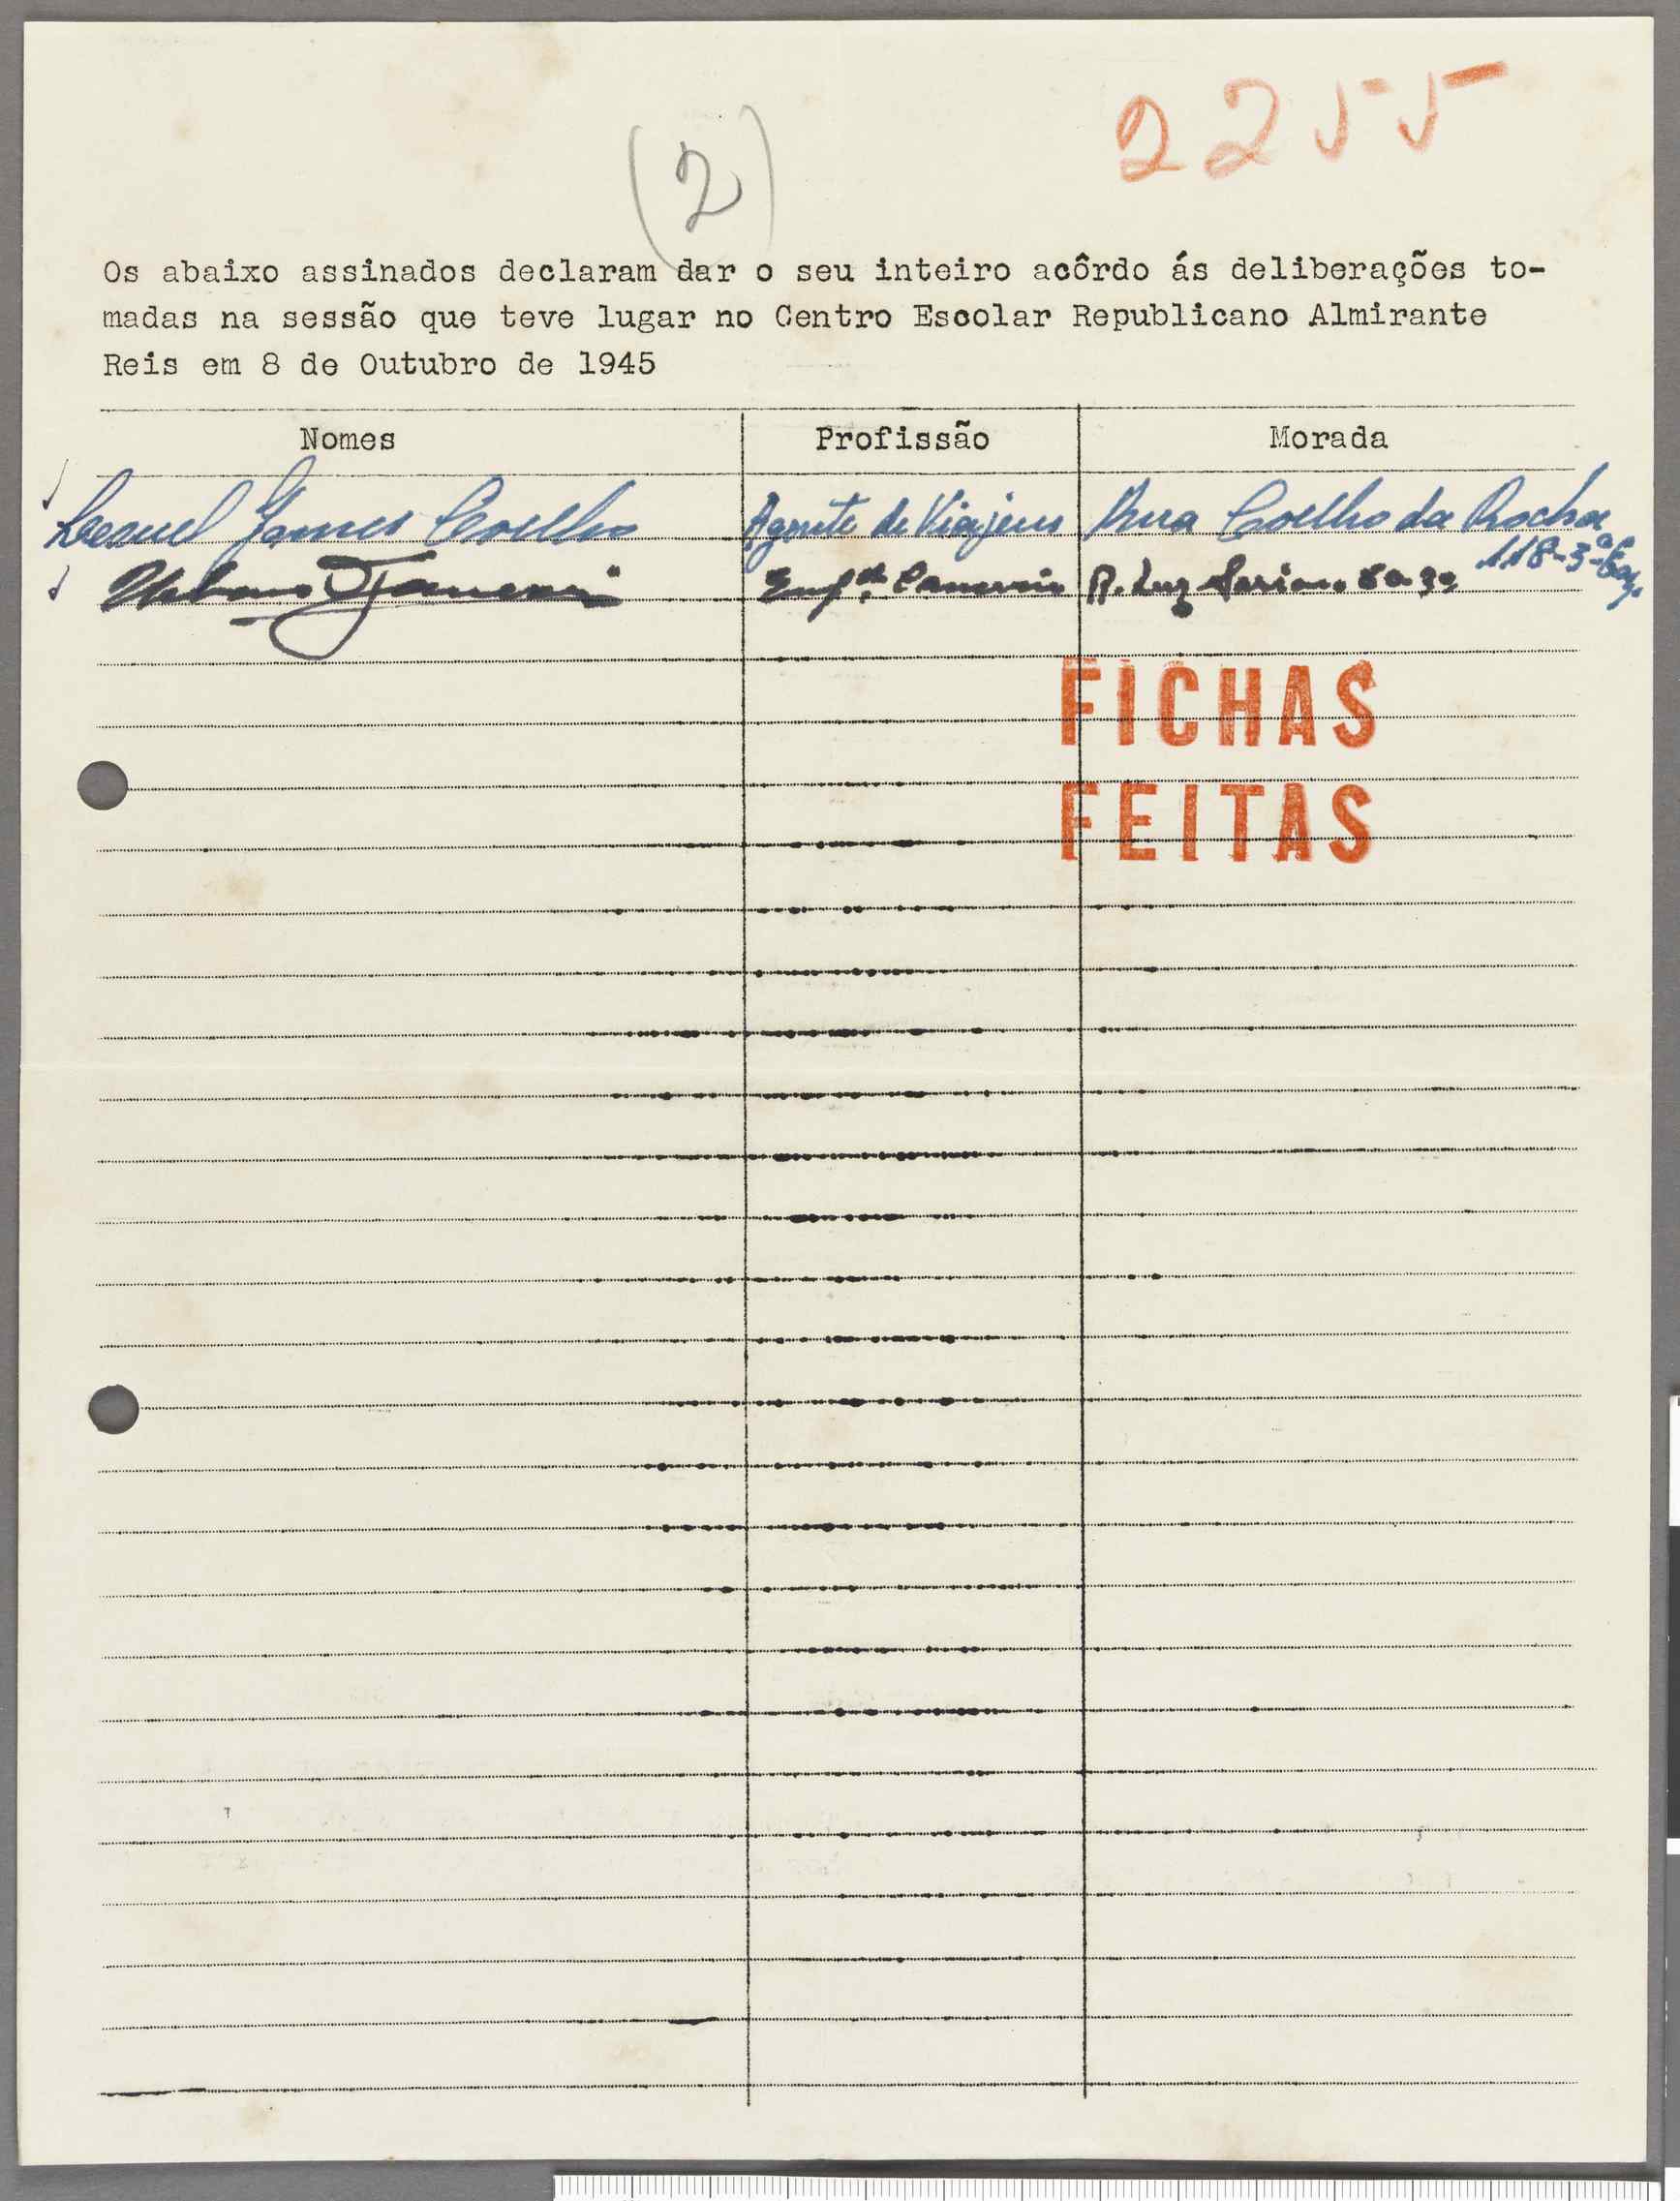 2255
(2)
Os abaixo assinados declaram dar o seu inteiro acôrdo ás deliberações to-
madas na sessão que teve lugar no Centro Escolar Republicano Almirante
Reis em 8 de Outubro de 1945
Nomes Profissão Morada
Gomes Coelho Agente de Viajens Rua Coelho da Rocha
118-3º
Urbano R. Luz Soriano
FICHAS
FEITAS